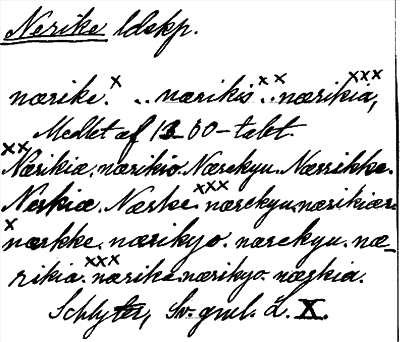 Nerike ldskp.
nærike. x .. nærikis x x .. nærikia, x x x
Medlet af 1300-talet.
x x Nærikiæ. nærikio. Nærekyu. Nærrikke.
Nerkiæ. Nærke. x x x nærekyu. nærikiær.
x nærkke. nærikyo. nærekyu. næ-
rikia. x x x nærike. nærikyo. nærkia.
Schlyter, Sv. gml. L. X.